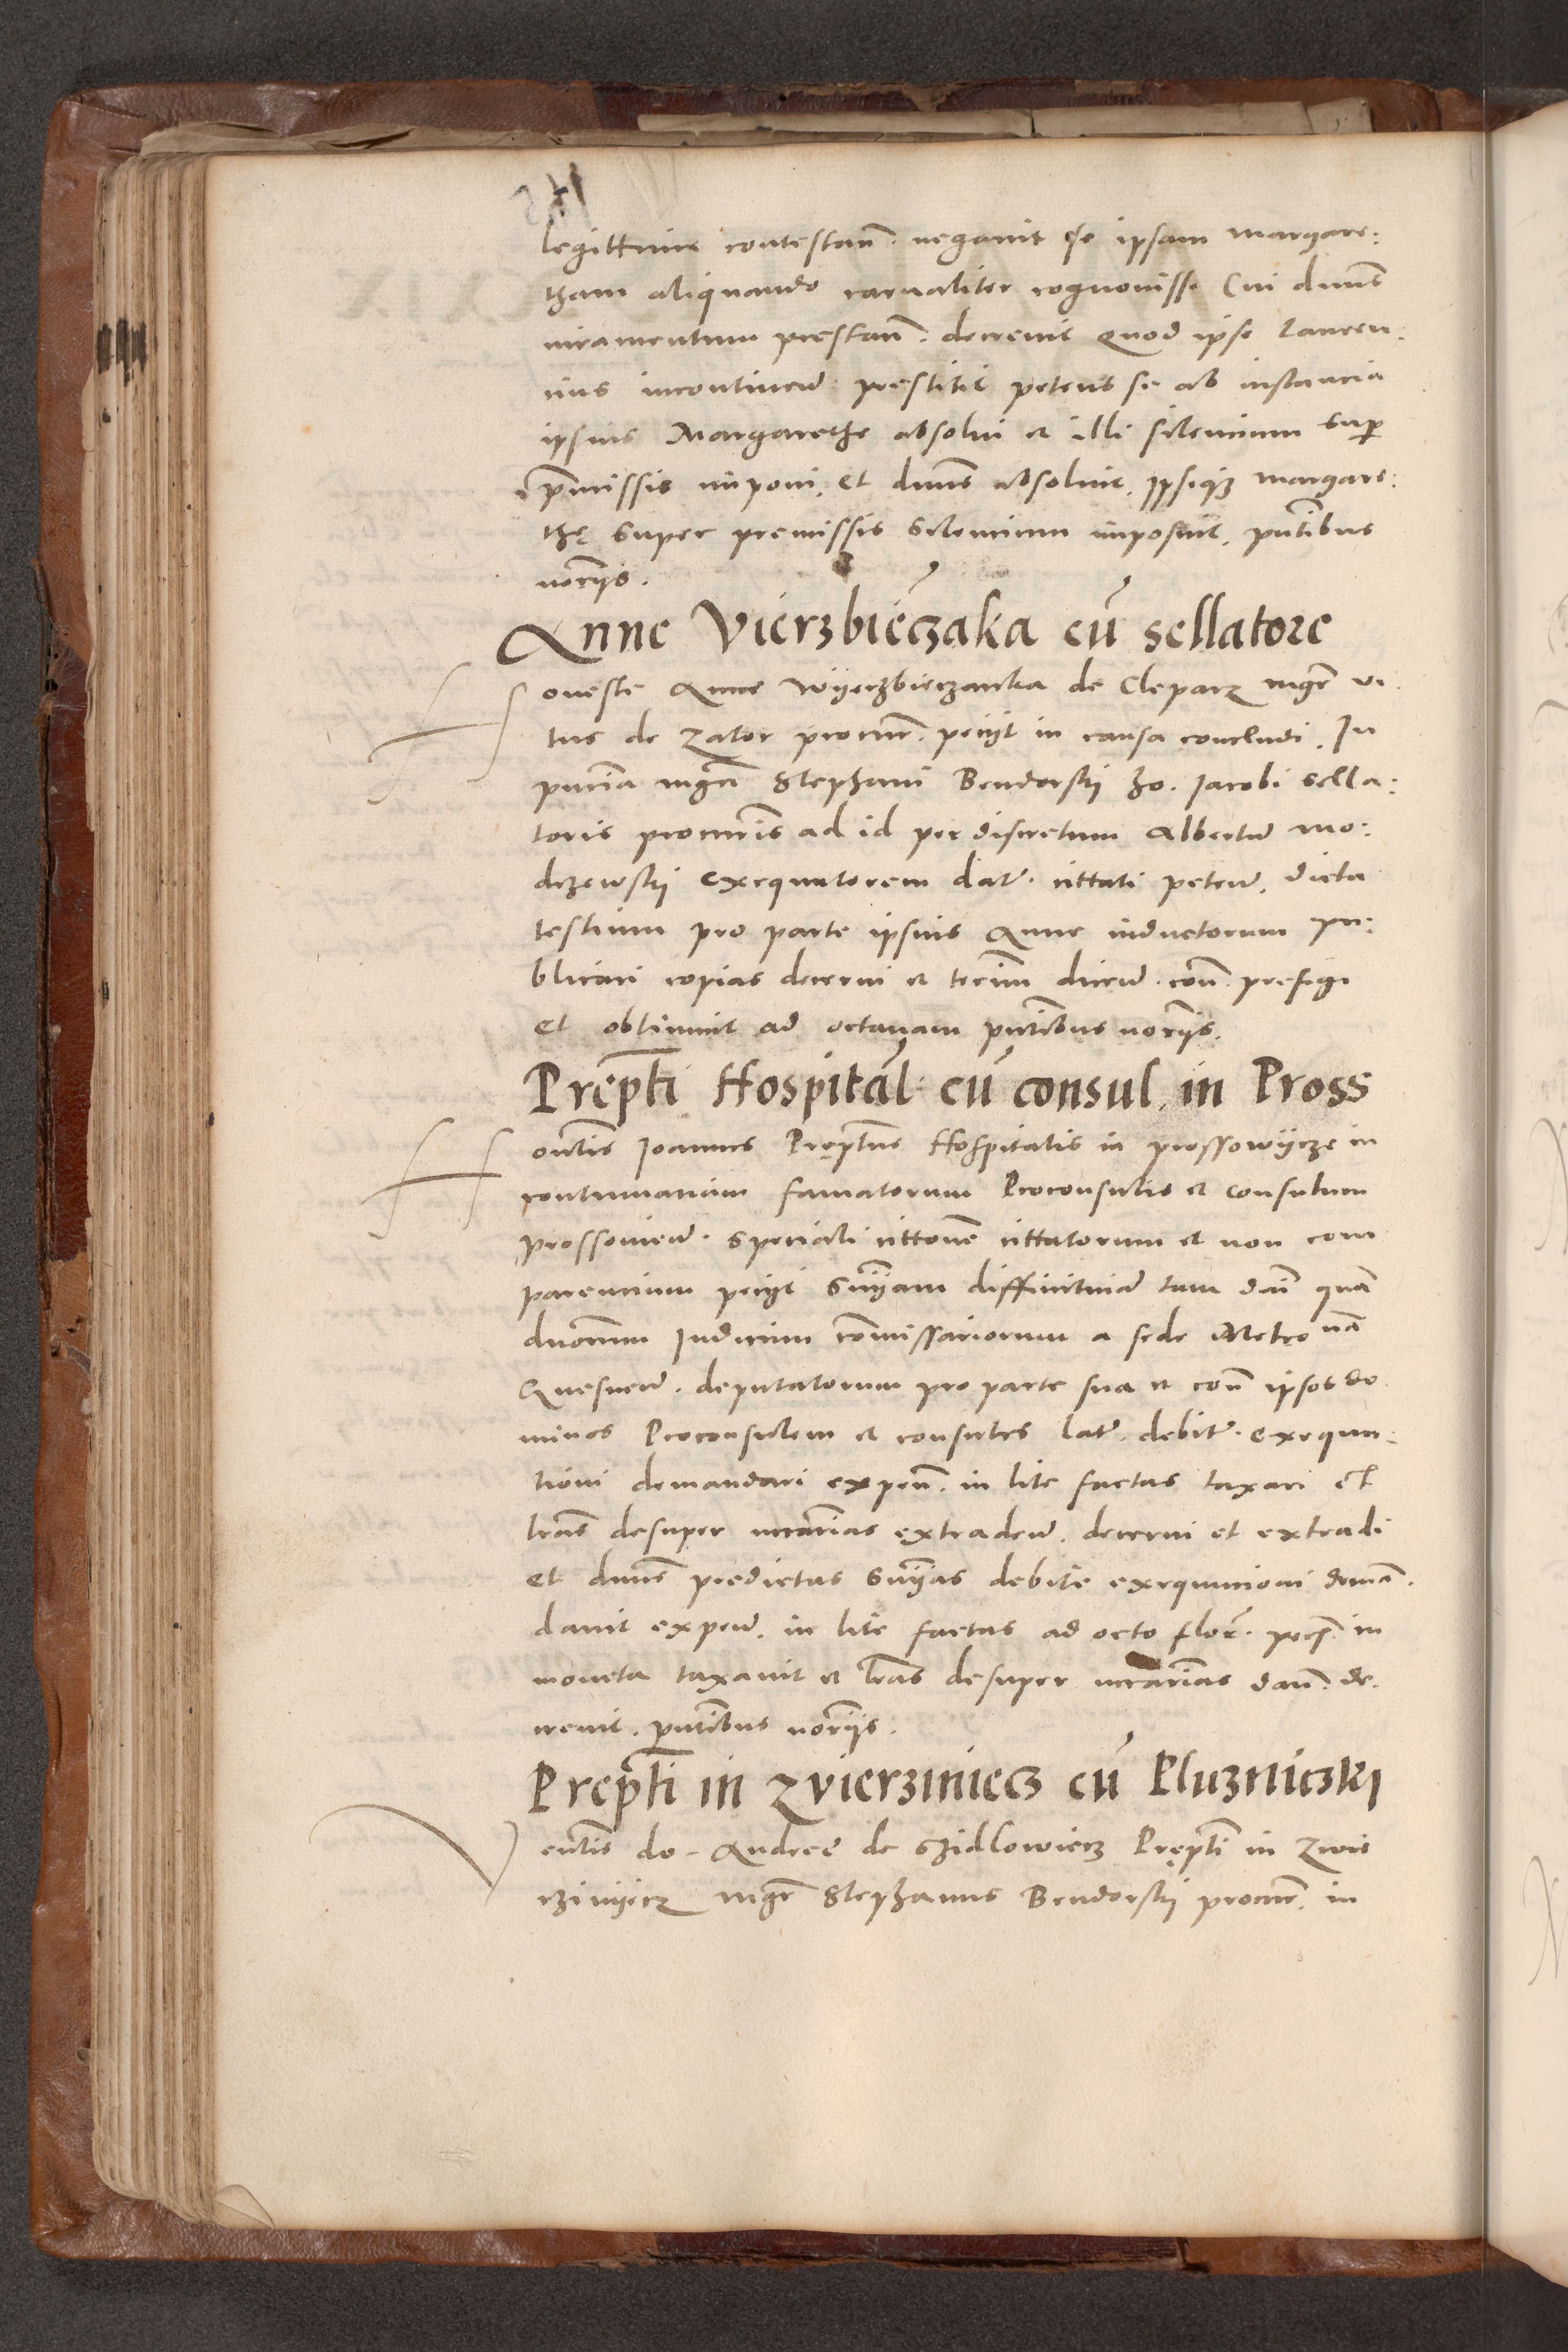 legittime contestan̄. negavit se ipsam margare:
tham aliquando carnaliter cognovisse Cui dn̄us
iuramentum prestan̄. decrevit Quod ipse Lauren:
cius incontinen̄ prestitit petens se ab instancia
ipsius Margarethe absolvi et illi silencium sup
p̄missis imponi. et dn̄us absolvit. Ipsiqꝫ margare:
thę super premissis silencium imposuit. pn̄tibus
nor̄ijs.
Anne Vierzbięczāka cū sellatore
Honeste Anne Wyerzbieczanka de Cleparz mgr̄ vi
tus de Zator procur̄. pecijt in causa concludi. In
pn̄cia mgr̄i Stephani Bendorskij ho. Iacobi sella:
toris procur̄is ad id per discretum Albertū mo:
drzewskij exequutorem dat̄. cittati peten̄. dicta
testium pro parte ipsius Anne inductorum pu:
blicari copias decerni et ter̄im dicen̄. con̄. prefigi
et obtinuit ad octavam pn̄tibus nor̄ijs.
Pręp̄ti Hospitāl: cū consul. in Pross
Honn̄tis Ioannes Pręp̄tus Hospitalis in prossowycze in
contumaciam famatorum Proconsulis et consulum
prossovien̄. speciali cittone cittatorum et non com
parencium pecijt sn̄iam diffinitivā tum dn̄i quā
duorum Iudicum cōmissariorum a sede Metro nā
Gnesnen̄. deputatorum pro parte sua et con̄ ipsos do
minos Proconsulem et consules lat̄. debit̄. exequu:
tioni demandari expen̄. in lite factas taxari et
lr̄as desuper nec̄arias extraden̄. decerni et extradi
et dn̄us predictas sn̄ias debite exequucioni demā.
davit expen̄. in lite factas ad octo flor̄. pecū. in
moneta taxavit et lr̄as desuper nec̄arias dan̄. de.
crevit. pn̄tibus nor̄ijs.
Pręp̄ti in Zvierziniecz cū Pluzniczki
Ven̄tis do. Andreę de Schidlowiecz Pręp̄ti in Zwie
rzinijecz mgr̄ Stephanus Bendorskij procur̄. in